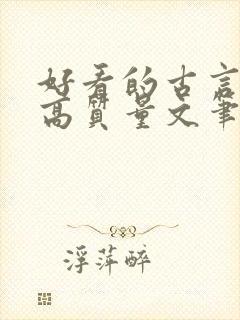 好看的古言
高质量文笔
浮萍醉